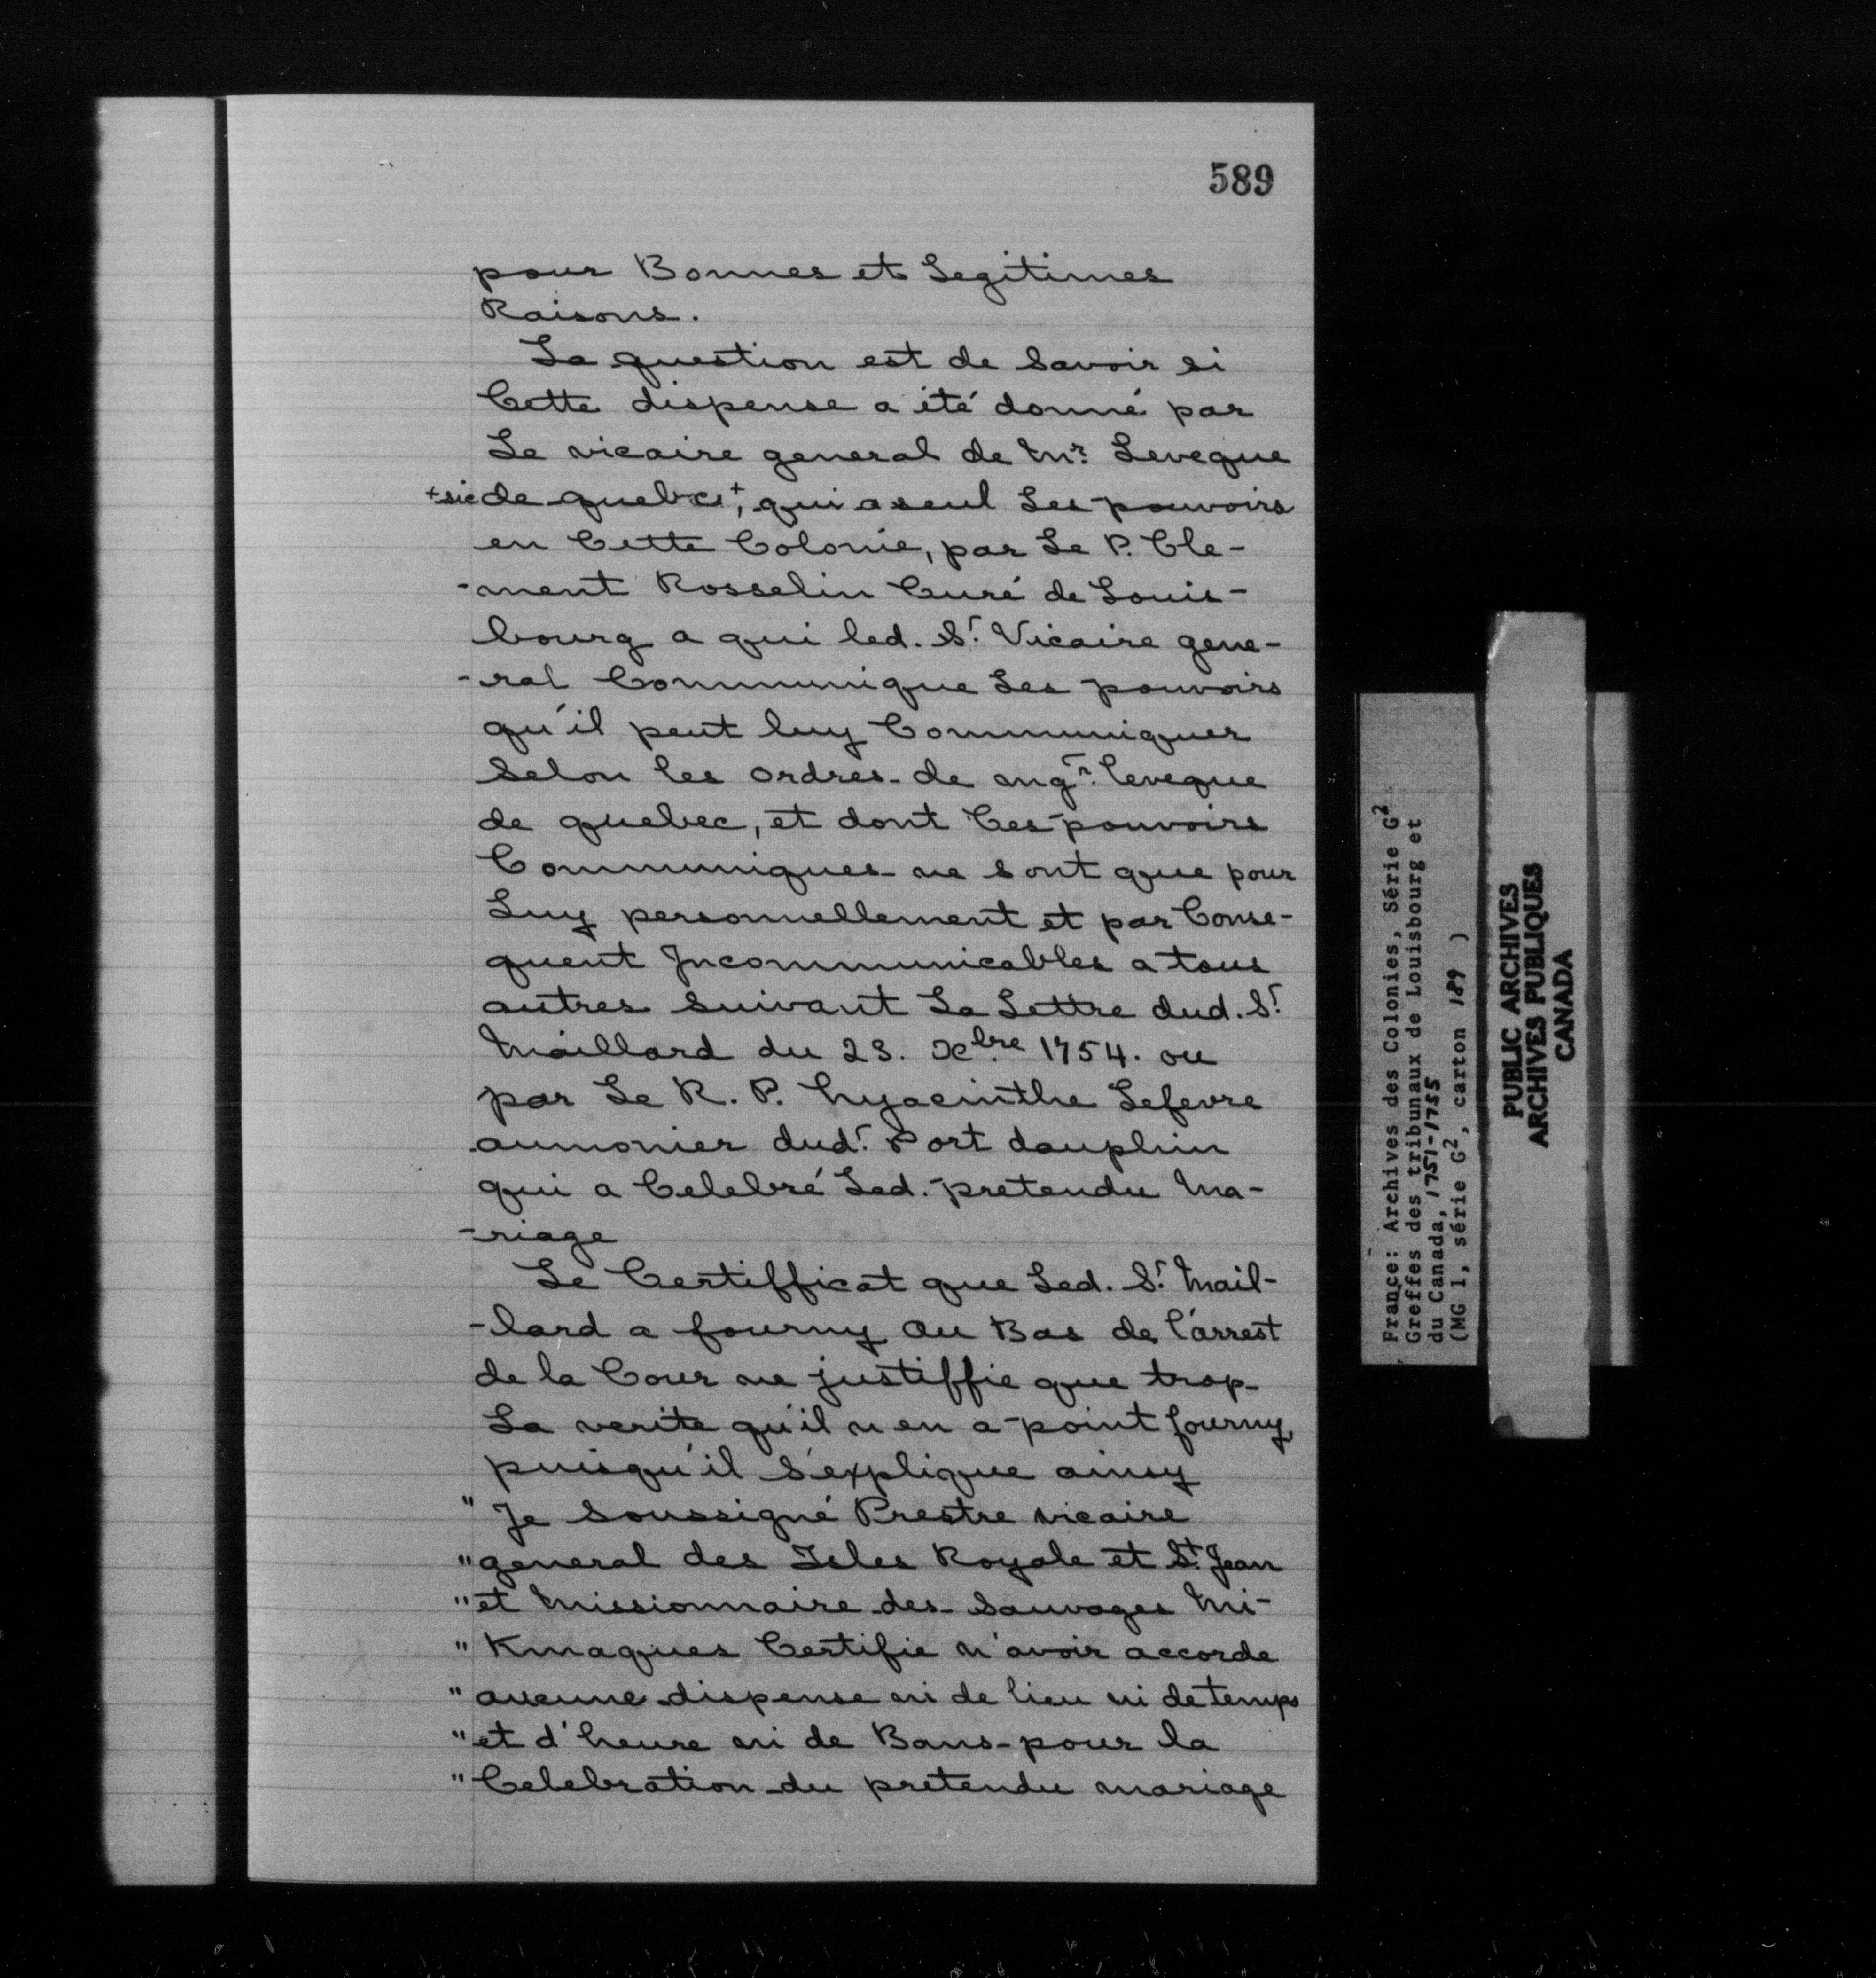 589
pour Bonnes et Legitimes
Raisons.
La question est de Savoir si
Cette dispense a été donné par
Le vicaire general de Mr. Leveque
+sic de quebce+, qui a seul Les pouvoirs
en Cette Colonie, par Le P. Cle-
-ment Rosselin Curé de Louis-
bourg a qui led. Sr. Vicaire gene-
-ral Communique Les pouvoirs
qu'il peut luy Communiquer
Selon les ordres de mgr. leveque
de quebec, et dont Ces pouvoirs
Communiques ne sont que pour
Luy personnellement et par Conse-
quent Incommunicables a tous
autres suivant La Lettre dud. Sr.
Maillard du 23. Xbre 1754. ou
par Le R. P. hyacinthe Lefevre
aumonier dudt. Port dauphin
qui a Celebré Led. pretendu Ma-
-riage
Le Certifficat que Led. Sr. Mail-
-lard a fourny au Bas de l'arrest
de la Cour ne justiffie que trop
La verite qu'il n en a point fourny,
puisqu'il s'explique ainsy
" Je soussigné Prestre vicaire
" general des Isles Royale et St. Jean
" et Missionnaire des Sauvages Mi-
" Kmaques Certifie n'avoir accorde
" aucune dispense ni de lieu ni de temps
" et d'heure ni de Bans pour la
" Celebration du pretendu mariage
France: Archives des Colonies, Série G2
Greffes des tribunaux de Louisbourg et
du Canada, 1751-1755
(MG 1, série G2, carton 189 )
PUBLIC ARCHIVES
ARCHIVES PUBLIQUES
CANADA